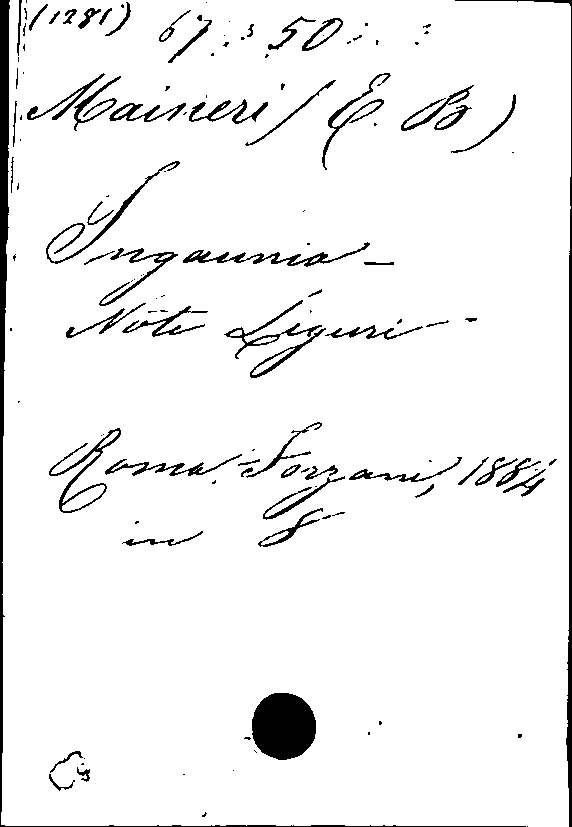 (1281) 67 50
Maineri (E. B)
Ingaunia -
Note Liguri -
Roma. Forzani, 1884
in 8